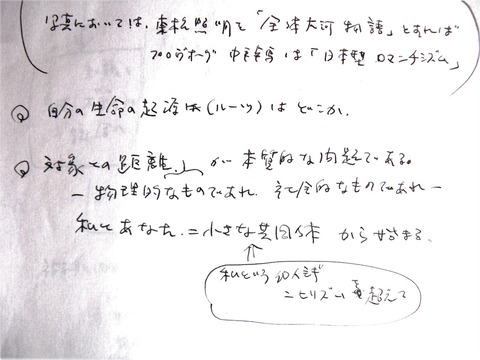 写真においては、東松照明を「全体大河物語」とすれば
プロヴォーグ 中平卓馬は「日本型ロマンチズム」
② 自分の生命の起源は(ルーツ)はどこか。
② 対象との距離、が本質的な問題である。
— 物理的なものであれ、社会的なものであれ —
私とあなた = 小さな共同体 から始まる。
私という 個人主義
ニヒリズムを超えて